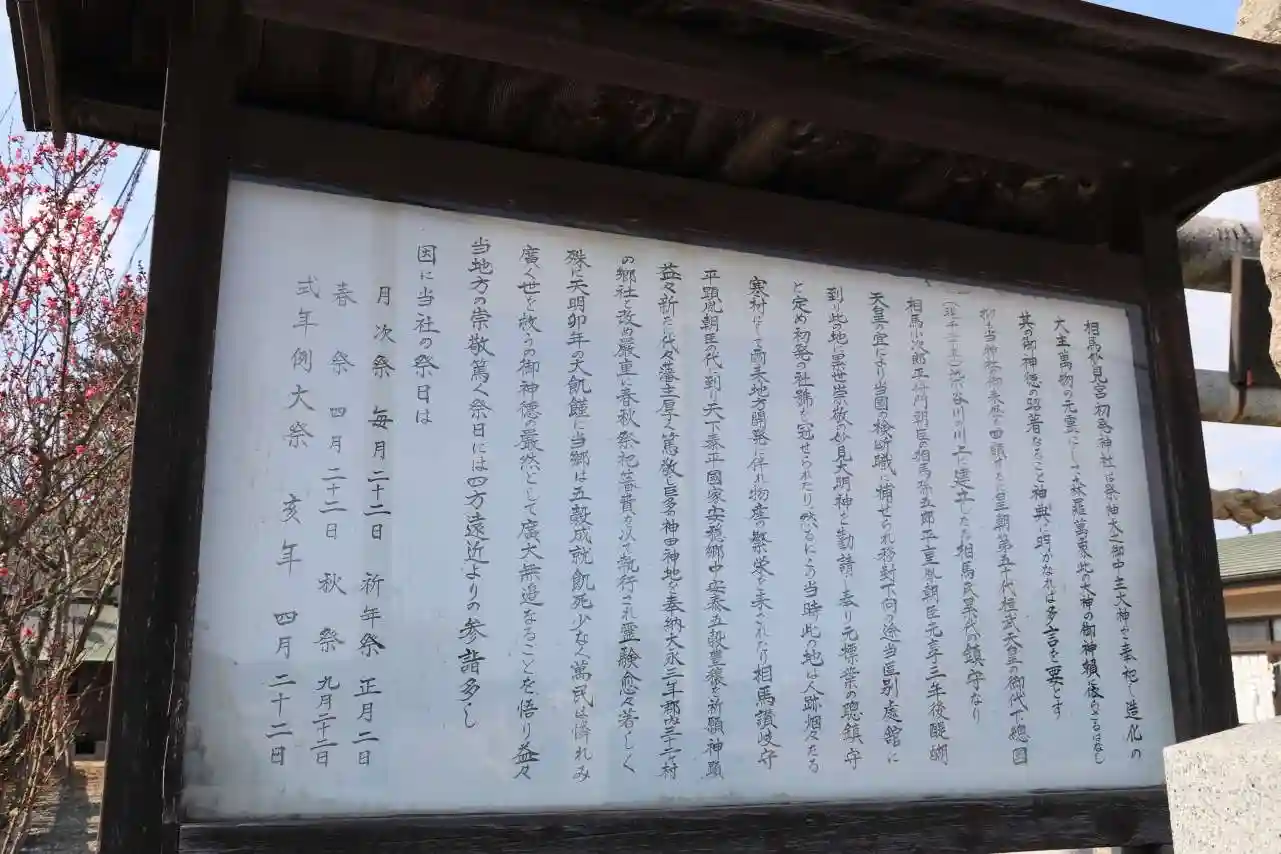 相馬妙見宮初発神社は祭神天之御中主大神を奉祀し造化の
大主萬物の元霊にして森羅萬象此の大神の御神頼に依らざるはなし
其の御神徳の昭著なること神典に明かなれば多言を要とす
抑も当御社御来歴を回顧するに皇朝第五十代桓武天皇の御代下總国
渋谷川の川上に建立したる相馬氏累代の鎮守なり
相馬小次郎平将門朝臣の相馬弥五郎平重胤朝臣元亨三年後醍醐
天皇の宣により当國の検断職に補せられ移封下向の途当區別處舘に
到り此の地に累世崇敬の妙見大明神を勧請し奉り元標葉の總鎮守
と定め初発の社號を冠せられたり然るにこの当時此の地は人跡烟々たる
寒村にして爾来地方開発に伴れ物産の繁栄を来されたり相馬讃岐守
平顕胤朝臣の代に到り天下泰平國家安穏郷中安泰五穀豊穣を祈願神顕
益々新たに代々藩主厚く篤敬し巨多の神田神地を奉納大永三年郡内三十一ヶ村
の郷社と改め厳重に春秋祭祀藩費を以て執行され霊験愈々著しく
殊に天明卯年の大飢饉に当郷は五穀成就飢死少なく萬民は憐れみ
廣く世を救うの御神徳の嚴然として廣大無邉なることを悟り益々
当地方の崇敬篤く祭日には四方遠近よりの参詣多し
因に当社の祭日は
月次祭 毎月二十二日 祈年祭 正月二日
春祭 四月二十二日 秋祭 九月二十二日
式年例大祭 亥年 四月二十二日